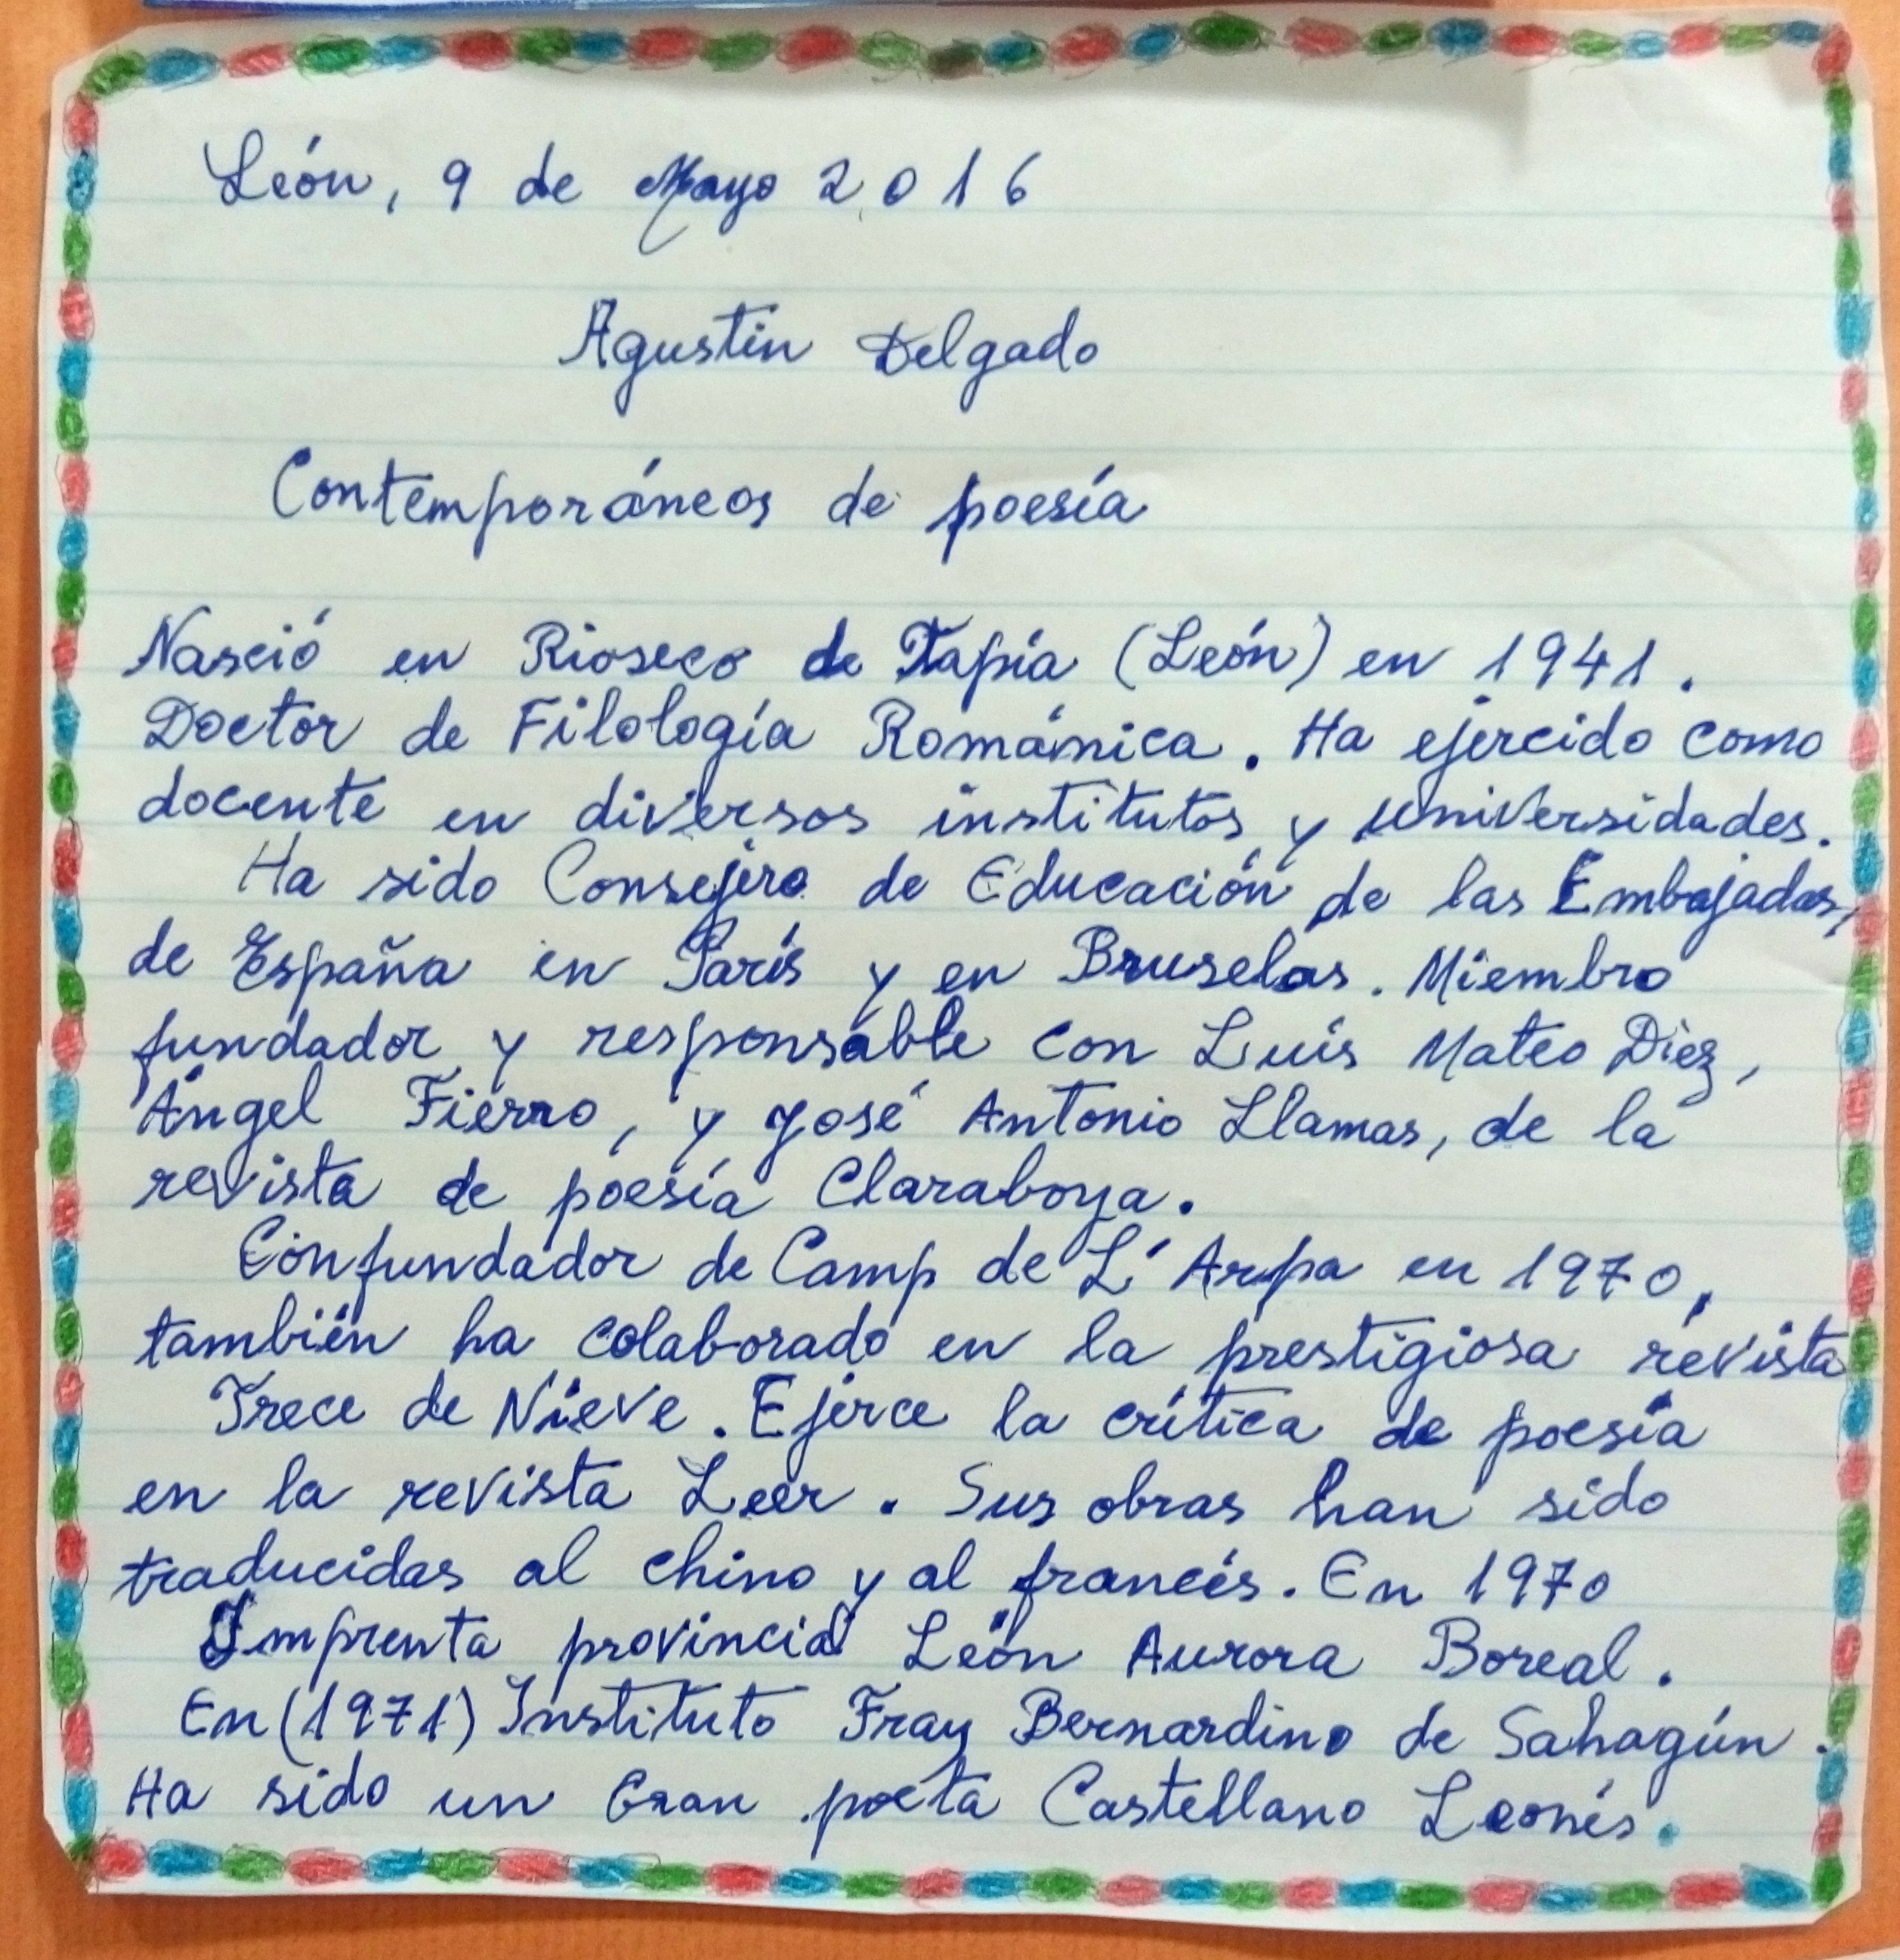 León, 9 de Mayo 2016
Agustín Delgado
Contemporáneos de poesía
Nasció en Rioseco de Tapia (León) en 1941.
Doctor de Filología Románica. Ha ejercido como
docente en diversos institutos y universidades.
Ha sido Consejero de Educación de las Embajadas,
de España en París y en Bruselas. Miembro
fundador y responsable con Luis Mateo Diez,
Ángel Fierro, y José Antonio Llamas, de la
revista de poesía Claraboya.
Confundador de Camp de L'Arpa en 1970,
también ha colaborado en la prestigiosa revista
Trece de Nieve. Ejerce la crítica de poesía
en la revista Leer. Sus obras han sido
traducidas al chino y al francés. En 1970
Imprenta provincial León Aurora Boreal.
En (1971) Instituto Fray Bernardino de Sahagún.
Ha sido un Gran poeta Castellano Leonés.